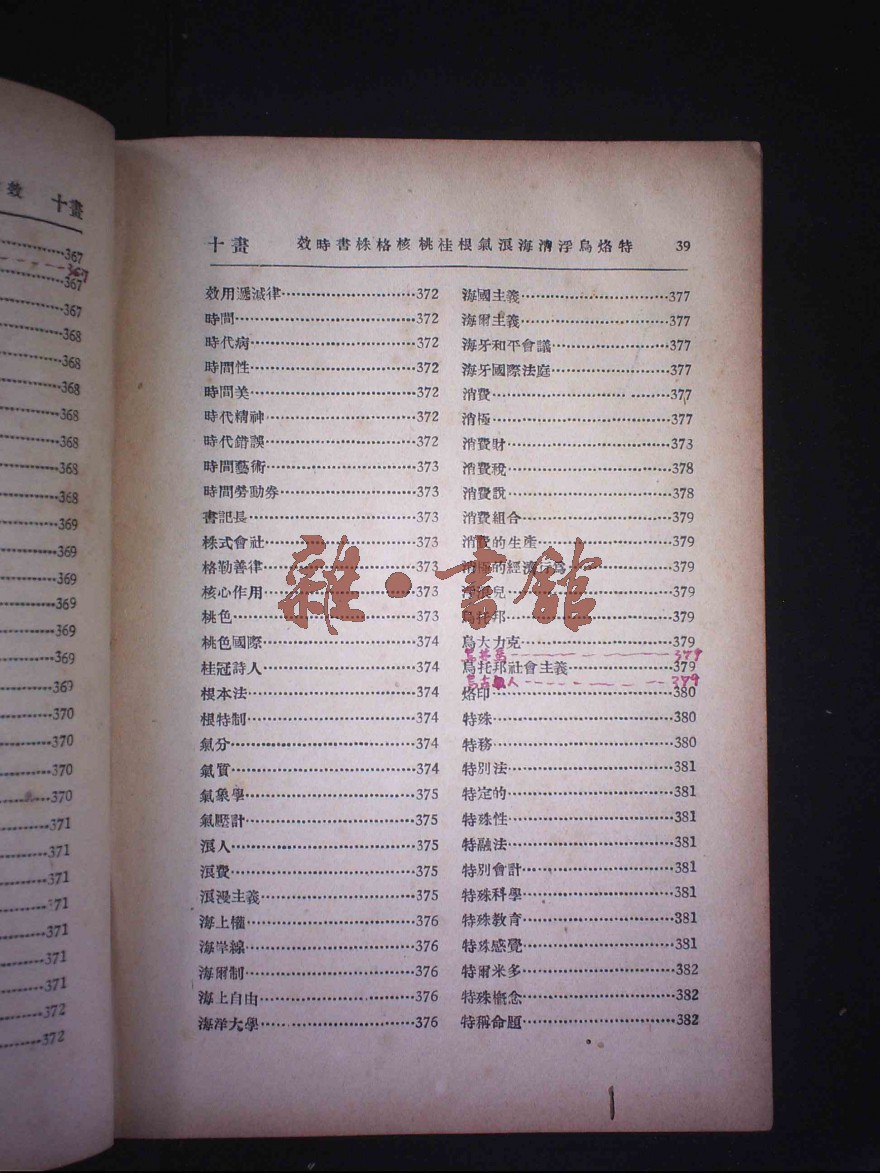 效 十畫
367
367
367
367
368
368
368
368
368
368
369
369
369
369
369
369
367
370
370
370
370
371
371
371
371
371
371
372
372
十畫 效時書株格核桃桂根氣浪海消浮烏烙特 39
效用遞減律……372
時間……372
時代病……372
時間性……372
時間美……372
時代精神……372
時代錯誤……372
時間藝術……373
時間勞動券……373
書記長……373
株式會社……373
格勒善律……373
核心作用……373
桃色……373
桃色國際……374
桂冠詩人……374
根本法……374
根特制……374
氣分……374
氣質……374
氣象學……375
氣壓計……375
浪人……375
浪費……375
浪漫主義……375
海上權……376
海岸線……376
海爾制……376
海上自由……376
海洋大學……376
海國主義……377
海爾主義……377
海牙和平會議……377
海牙國際法庭……377
消費……377
消極……377
消費財……373
消費稅……378
消費說……378
消費組合……379
消費的生產……379
消極的經濟行為……379
浮浪兒……379
烏托邦……379
烏大力克……379
379
烏托邦社會主義……379
379
烙印……380
特殊……380
特務……380
特別法……381
特定的……381
特殊性……381
特融法……381
特別會計……381
特殊科學……381
特殊教育……381
特殊感覺……381
特爾米多……382
特殊概念……382
特稱命題……382
雜·書館